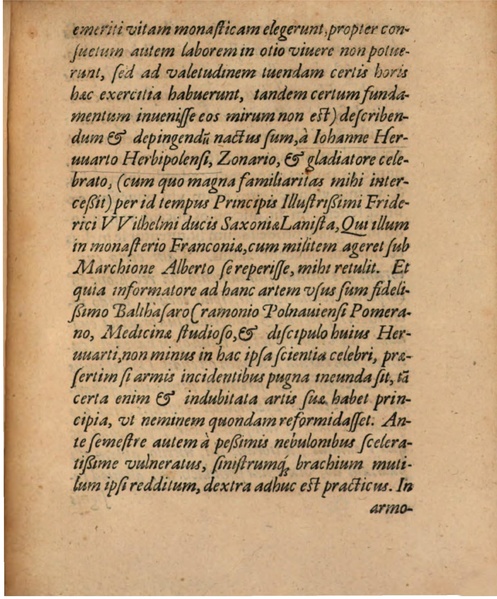 emeriti vitam monasticam elegerunt, propter con-
suetum autem laborem in otio viuere non potue-
runt, sed ad valetudinem tuendam certis horis
hac exercitia habuerunt, tandem certum funda-
mentum inuenisse eos mirum non est) describen-
dum & depingendū nactus sum, à Iohanne Her-
uuarto Herbipolensi, Zonario, & gladiatore cele-
brato, (cum quo magna familiaritas mihi inter-
ceßit) per id tempus Principis Illustrißimi Fride-
rici VVilhelmi ducis Saxoniæ Lanista, Qui illum
in monasterio Franconiæ, cum militem ageret sub
Marchione Alberto se reperisse, mihi retulit. Et
quia informatore ad hanc artem vsus sum fideli-
ßimo Balthasaro Cramonio Polnauiensi Pomera-
no, Medicinæ studioso, & discipulo huius Her-
uuarti, non minus in hac ipsa scientia celebri, præ-
sertim si armis incidentibus pugna ineunda sit, tā
certa enim & indubitata artis suæ habet prin-
cipia, vt neminem quondam reformidasset. An-
te semestre autem à peßimis nebulonibus scelera-
tißime vulneratus, sinistrumq́; brachium muti-
lum ipsi redditum, dextra adhuc est practicus. In
armo-